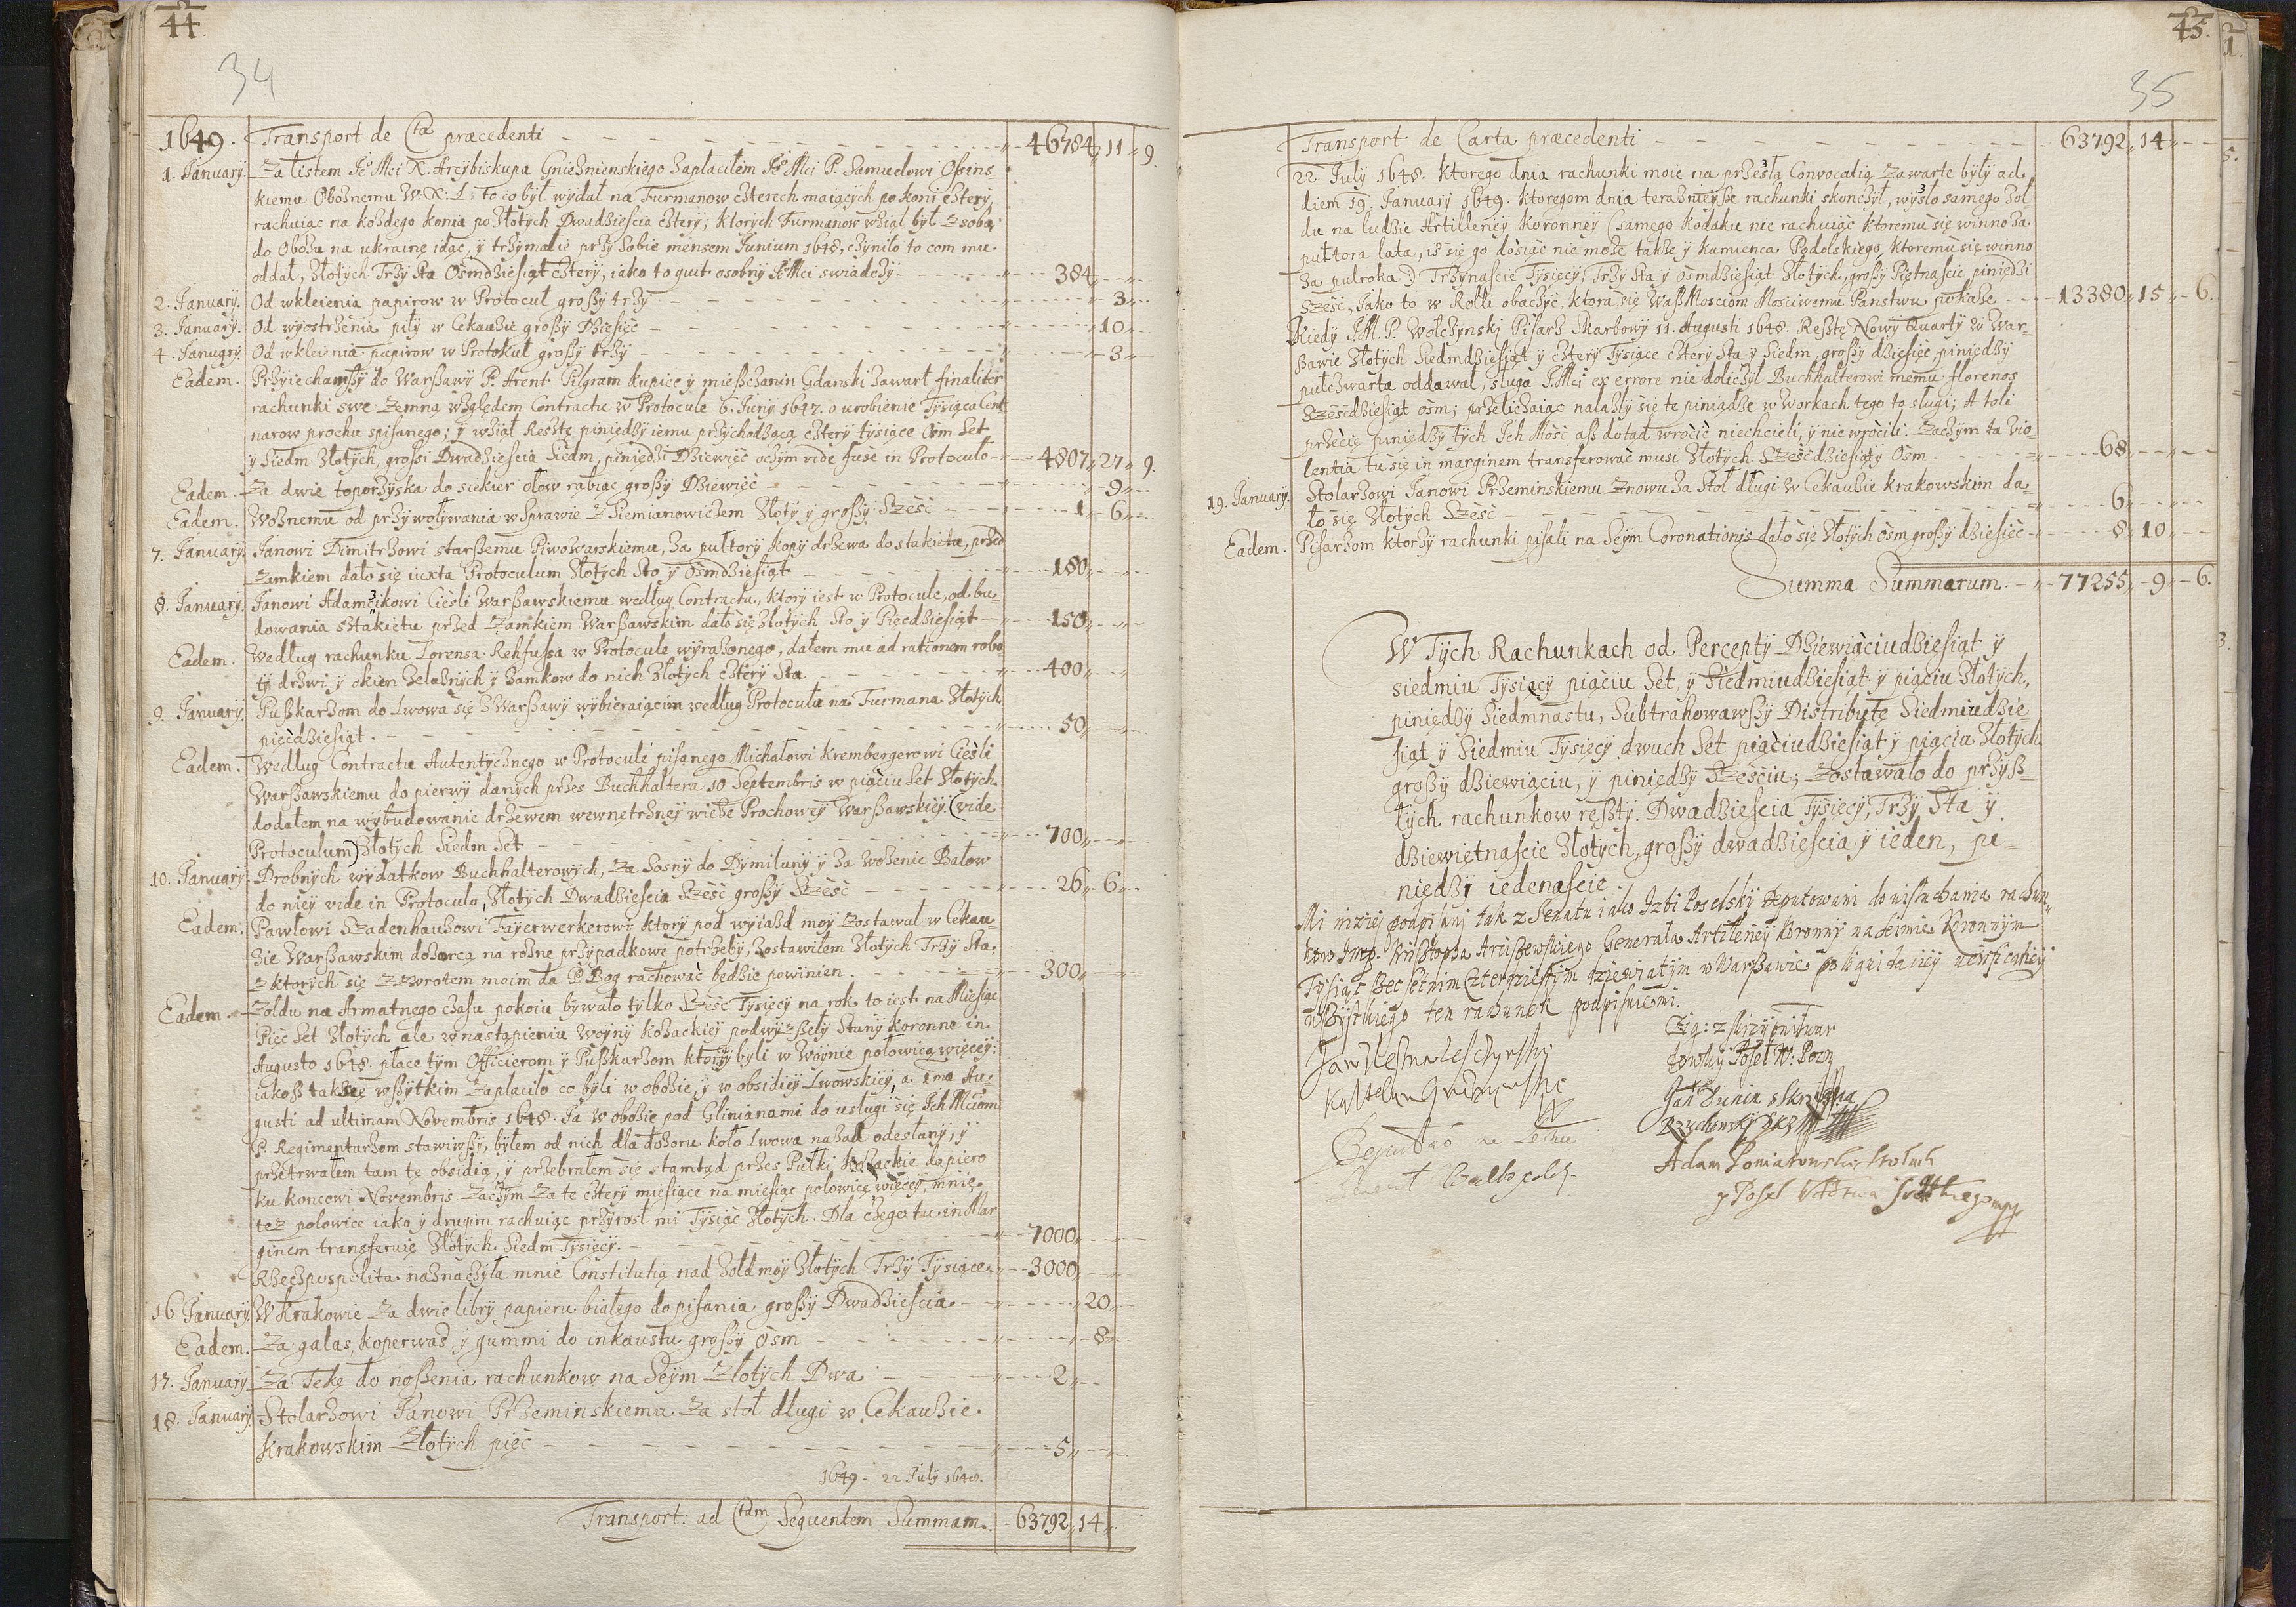 44.
34
1649. Transport de Cta præcedenti 46784 11 9.
1. January. Za listem Je Mci X. Arcybiskupa Gnieznienskiego zapłaciłem Je Mci P. Samuelowi Osins-
kiemu Oboznemu W. X. L. to co był wydał na Furmanow czterech maiących po koni cztery,
rachuiąc na kozdego konia po złotych Dwadziescia cztery; ktorych Furmanow wziął był z sobą
do Obozu na ukrainę idąc, y trzymałie przy sobie mensem Junium 1648, czyniło to com mu
oddał, złotych Trzy sta Osmdziesiąt cztery, iako to quit osobny Je Mci swiadczy 384
2. January. Od wkleienia papirow w Protocuł groszy trzy 3
3. January. Od wyostrzenia piły w Cekauzie groszy Dziesięc 10
4. January. Od wkleinia papirow w Protokuł groszy trzy 3
Eadem. Przyiechawszy do Warszawy P. Arent Pilgram kupiec y mieszczanin Gdanski zawarł finaliter
rachunki swe zemną względem Contractu w Protocule 6. Juny 1647. o urobienie Tysiąca Cent
narow prochu spisanego; y wziął Resztę piniędzy iemu przychodzącą cztery tysiące Osm set
y Siedm złotych, groszi Dwadziescia Siedm, piniędzi Dziewięc oczym vide fuse in Protocolo 4807 27 9.
Eadem. Za dwie toporzyska do siekier ołow rąbiąc groszy Dziewięc 9
Eadem. Woznemu od przywoływania w Sprawie z Siemianowiczem złoty y groszy Szesc 1 6
7. January. Janowi Dimitrzowi starszemu Piwowarskiemu, za pułtory kopy drzewa do stakietu, przed
Zamkiem dało się iuxta Protoculum złotych sto y Osmdziesiąt 180
8. January. Janowi Adamczikowi Ciesli Warszawskiemu według Contractu, ktory iest w Protocule, od bu-
dowania sztakietu przed Zamkiem Warszawskim dało się złotych sto y Pięcdziesiąt 150
Eadem. Według rachunku Lorensa Rehfussa w Protocule wyrazonego, dałem mu ad rationem robo
ty drzwi y okien zelaznych y zamkow do nich złotych cztery sta 400
9. January. Puszkarzom do Lwowa się z Warszawy wybieraiącim według Protocułu na Furmana złotych
pięcdziesiąt. 50
Eadem. Według Contractu Autentycznego w Protocule pisanego Michałowi Krembergerowi Ciesli
Warszawskiemu do pierwy danych przes Buchhaltera 10 Septembris w piąciu set złotych
dodałem na wybudowanie drzewem wewnętrzney wieze Prochowey Warszawskiey (vide
Protoculum) złotych Siedm set 700
10. January. Drobnych wydatkow Buchhalterowych, za Sosny do Dymiluny y za wozenie Balow
do niey vide in Protoculo, złotych Dwadziescia Szesc groszy Szesc 26 6
Eadem. Pawłowi Szadenhauzowi Fayerwerkerowi ktory pod wyiazd moy zostawał w Cekau-
zie Warszawskim dozorcą na rozne przypadkowe potrzeby, zostawiłem złotych Trzy sta
z ktorych się z zwrotem moim da P. Bog rachowac będzie powinien. 300
Eadem. Zołdu na Armatnego czasu pokoiu bywało tylko Szesc Tysięcy na rok to iest na Miesiąc
Pięc set złotych ale w nastąpieniu woyny kozackiey podwyzszeły Stany koronne in
Augusto 1648. płace tym Officierom y Puszkarzom ktorzy byli w woynie połowicą więcey:
iakosz tak się wszytkim zapłaciło co byli w obozie, y w obsidiey Lwowskiey, a 1ma Au-
gusti ad ultimam Novembris 1648. Ja w obozie pod Glinianami do usługi się Ich Mciom
P. Regimentarzom stawiwszy, byłem od nich dla dozoru koło Lwowa nazad odesłany, y
przetrwałem tam te obsidią, y przebrałem się stamtąd przes Pułki Kozackie dopiero
ku koncowi Novembris zaczym za te cztery miesiące na miesiąc połowicę więcey, mnie
tez połowice iako y drugim rachuiąc przyrosł mi Tysiąc złotych. Dla czego tu in Mar
ginem transferuię złotych Siedm Tysięcy. 7000
Rzeczpospolita naznaczyła mnie Constitutią nad zołd moy złotych Trzy Tysiące 3000
16 January. W Krakowie za dwie libry papieru białego do pisania groszy Dwadziescia 20
Eadem. Za galas, koperwas, y gummi do inkaustu groszy osm 8
17. January. Za Tekę do noszenia rachunkow na Seym złotych Dwa 2
18. January. Stolarzowi Janowi Przeminskiemu za stoł długi w Cekauzie
Krakowskim złotych pięc 5
1649. 22 July 1648.
Transport: ad Ctam Sequentem Summam. 63792 14
45.
35
Transport de Carta præcedenti 63792 14
22. July 1648. ktorego dnia rachunki moie na przeszłą Convocatią zawarte były ad
diem 19. January 1649. ktoregom dnia teraznieysze rachunki skonczył, wyszło samego zoł
du na ludzie Artilleriey Koronney (samego Kodaku nie rachuiąc ktoremu się winno za
pułtora lata, isz się go dosiąc nie moze takze y kamienca Podolskiego, ktoremu się winno
za pulroka:) Trzynascie Tysięcy, Trzy sta y Osmdziesiat złotych, groszy Piętnascie piniędzi
szesc, Jako to w Rolli obaczyc, ktora się Wasz Mosciom Mosciwemu Panstwu pokaze 13380 15 6.
Kiedy J. M. P. Wołczynsky Pisarz Skarbowy 11. Augusti 1648. Resztę Nowy Quarty w War-
szawie złotych Siedmdziesiąt y cztery Tysiące cztery sta y Siedm, groszy dziesięc, piniędzy
pułczwarta oddawał, sługa J. Mci ex errore nie doliczył Buchhalterowi memu florenos
Szescdziesiąt osm; przeliczaiąc nalazły się te piniądze w workach tego to sługi; A toli
przecię piniędzy tych Ich Mosc asz dotąd wrocic niechcieli, y nie wrocili. Zaczym ta Vio-
lentia tu się in marginem transferowac musi złotych Szescdziesiąty Osm 68
19. January. Stolarzowi Janowi Przeminskiemu znowu za Stoł długi w Cekauzie krakowskim da-
ło się złotych Szesc 6
Eadem. Pisarzom ktorzy rachunki pisali na Seym Coronationis dało się złotych osm groszy dziesięc 8 10
Summa Summarum. 77255 9 6.
W Tych Rachunkach od Percepty Dziewiąciudziesiąt y
siedmiu Tysięcy piąciu set, y Siedmiudziesiąt y piąciu złotych,
piniędzy Siedmnastu, Subtrahowawszy Distributę Siedmiudzie-
siąt y Siedmiu Tysięcy dwuch set piąciudziesiąt y piąciu złotych
groszy dziewiąciu, y piniędzy Szesciu; zostawało do przysz-
łych rachunkow reszty. Dwadziescia Tysięcy, Trzy sta y
dziewiętnascie złotych, groszy dwadziescia y ieden, pi-
niedzy iedenascie.
Mi niziej podpisani tak z Senatu iako Izbi Poselsky Deputowani do wisłuchania rachun-
kow Jmp. Krisztopha Arciszewskiego Generała Artileriey Koronny na seimie Koronnym
Tysiąc szescsetnim czterdziestym dziewiątym w Warszawie po liquidaciey y verificatiey
wszystkiego ten rachunek podpisuiemi.
Jan
Poseł
Jan Dunin
Adam Poniatowski
y Poseł